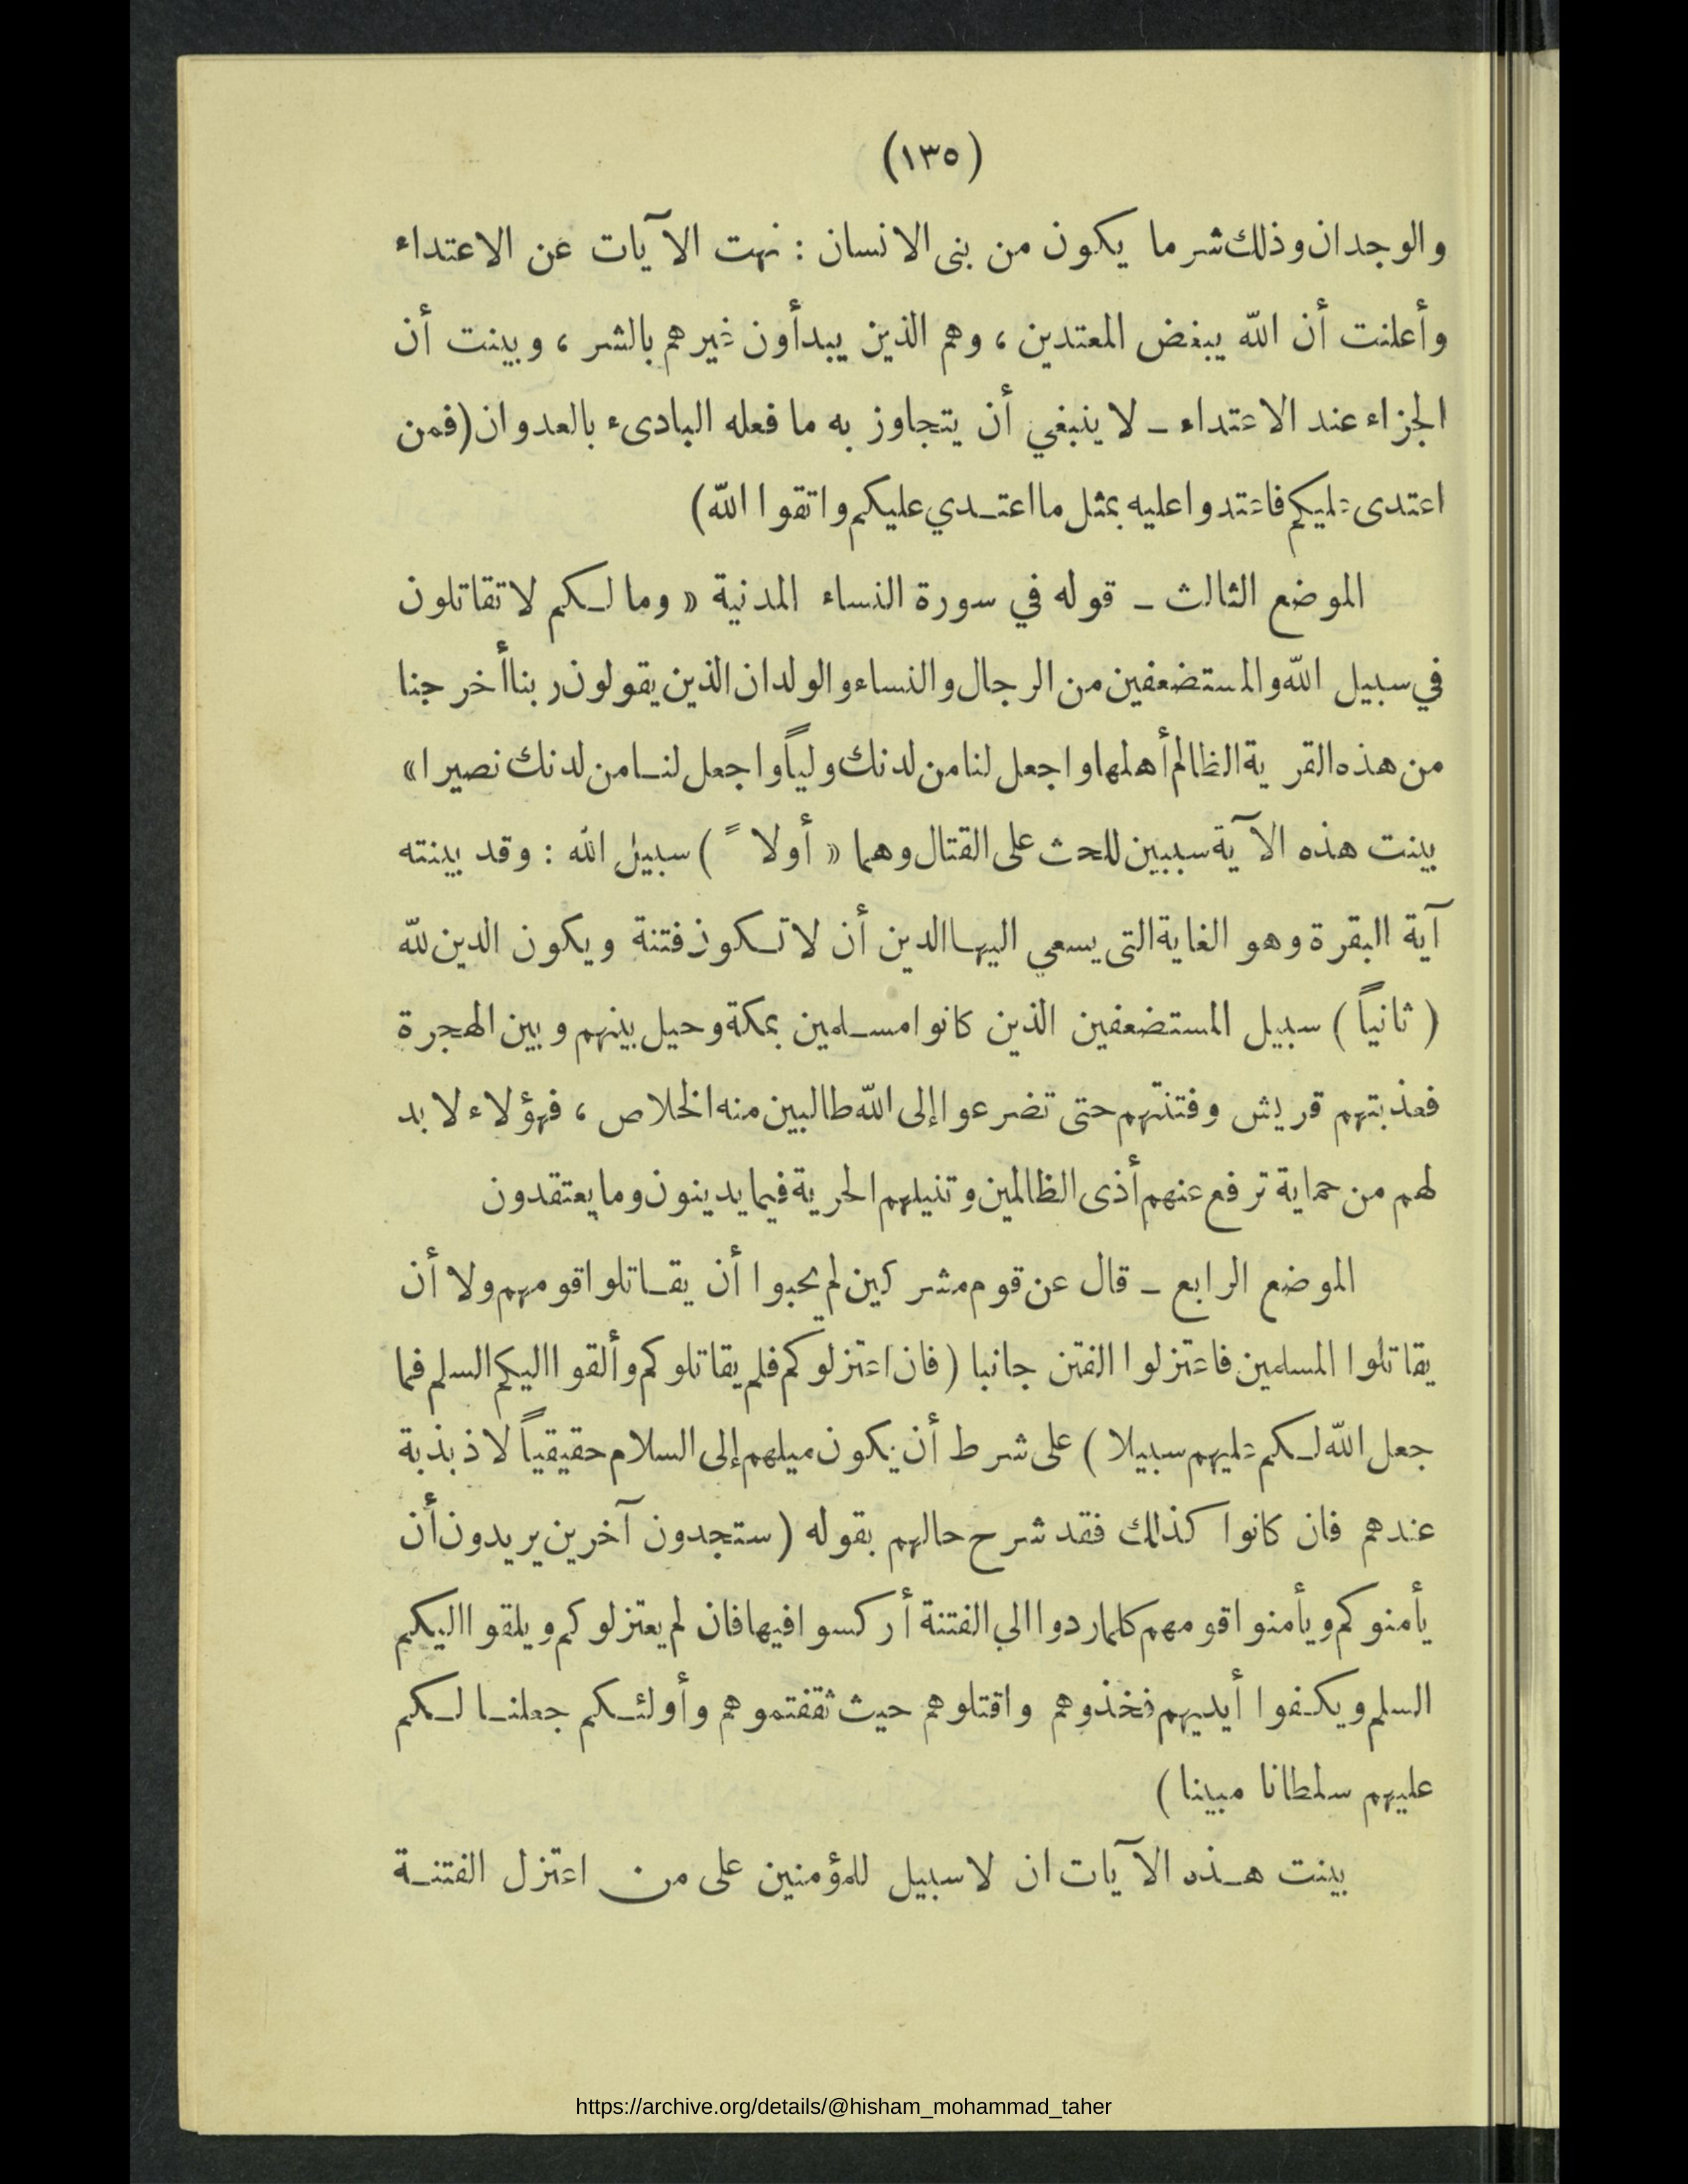 (١٣٥)
والوجدان وذلك شر ما يكون من بنى الانسان : نهت الآيات عن الاعتداء
وأعلنت أن الله يبغض المعتدين ، وهم الذين يبدأون غيرهم بالشر ، وبينت أن
الجزاء عند الاعتداء ـ لا ينبغي أن يتجاوز به ما فعله البادىء بالعدوان (فمن
اعتدى عليكم فاعتدوا عليه بمثل ما اعتـدي عليكم واتقوا الله)
الموضع الثالث ـ قوله في سورة النساء المدنية « وما لـكم لا تقاتلون
في سبيل الله والمستضعفين من الرجال والنساء والولدان الذين يقولون ربنا أخرجنا
من هذه القرية الظالم أهلها واجعل لنا من لدنك ولياً واجعل لنـا من لدنك نصيرا »
بينت هذه الآية سببين للحث على القتال وهما « أولاً ) سبيل الله : وقد بينته
آية البقرة وهو الغاية التى يسعي اليهـا الدين أن لا تـكون فتنة ويكون الدين لله
( ثانياً ) سبيل المستضعفين الذين كانوا مسـلمين بمكة وحيل بينهم وبين الهجرة
فعذبتهم قريش وفتنتهم حتى تضرعوا إلى الله طالبين منه الخلاص ، فهؤلاء لا بد
لهم من حماية ترفع عنهم أذى الظالمين وتنيلهم الحرية فيما يدينون وما يعتقدون
الموضع الرابع ـ قال عن قوم مشركين لم يحبوا أن يقـاتلوا قومهم ولا أن
يقاتلوا المسلمين فاعتزلوا الفتن جانبا (فان اعتزلوكم فلم يقاتلوكم وألقوا اليكم السلم فما
جعل الله لـكم عليهم سبيلا ) على شرط أن يكون ميلهم إلى السلام حقيقياً لا ذبذبة
عندهم فان كانوا كذلك فقد شرح حالهم بقوله (ستجدون آخرين يريدون أن
يأمنوكم ويأمنوا قومهم كلما ردوا الي الفتنة أركسوا فيها فان لم يعتزلوكم ويلقوا اليكم
السلم ويكـفوا أيديهم فخذوهم واقتلوهم حيث ثقفتموهم وأولئـكم جعلنـا لـكم
عليهم سلطانا مبينا )
بينت هـذه الآيات ان لا سبيل للمؤمنين على من اعتزل الفتنـة
https://archive.org/details/@hisham_mohammad_taher